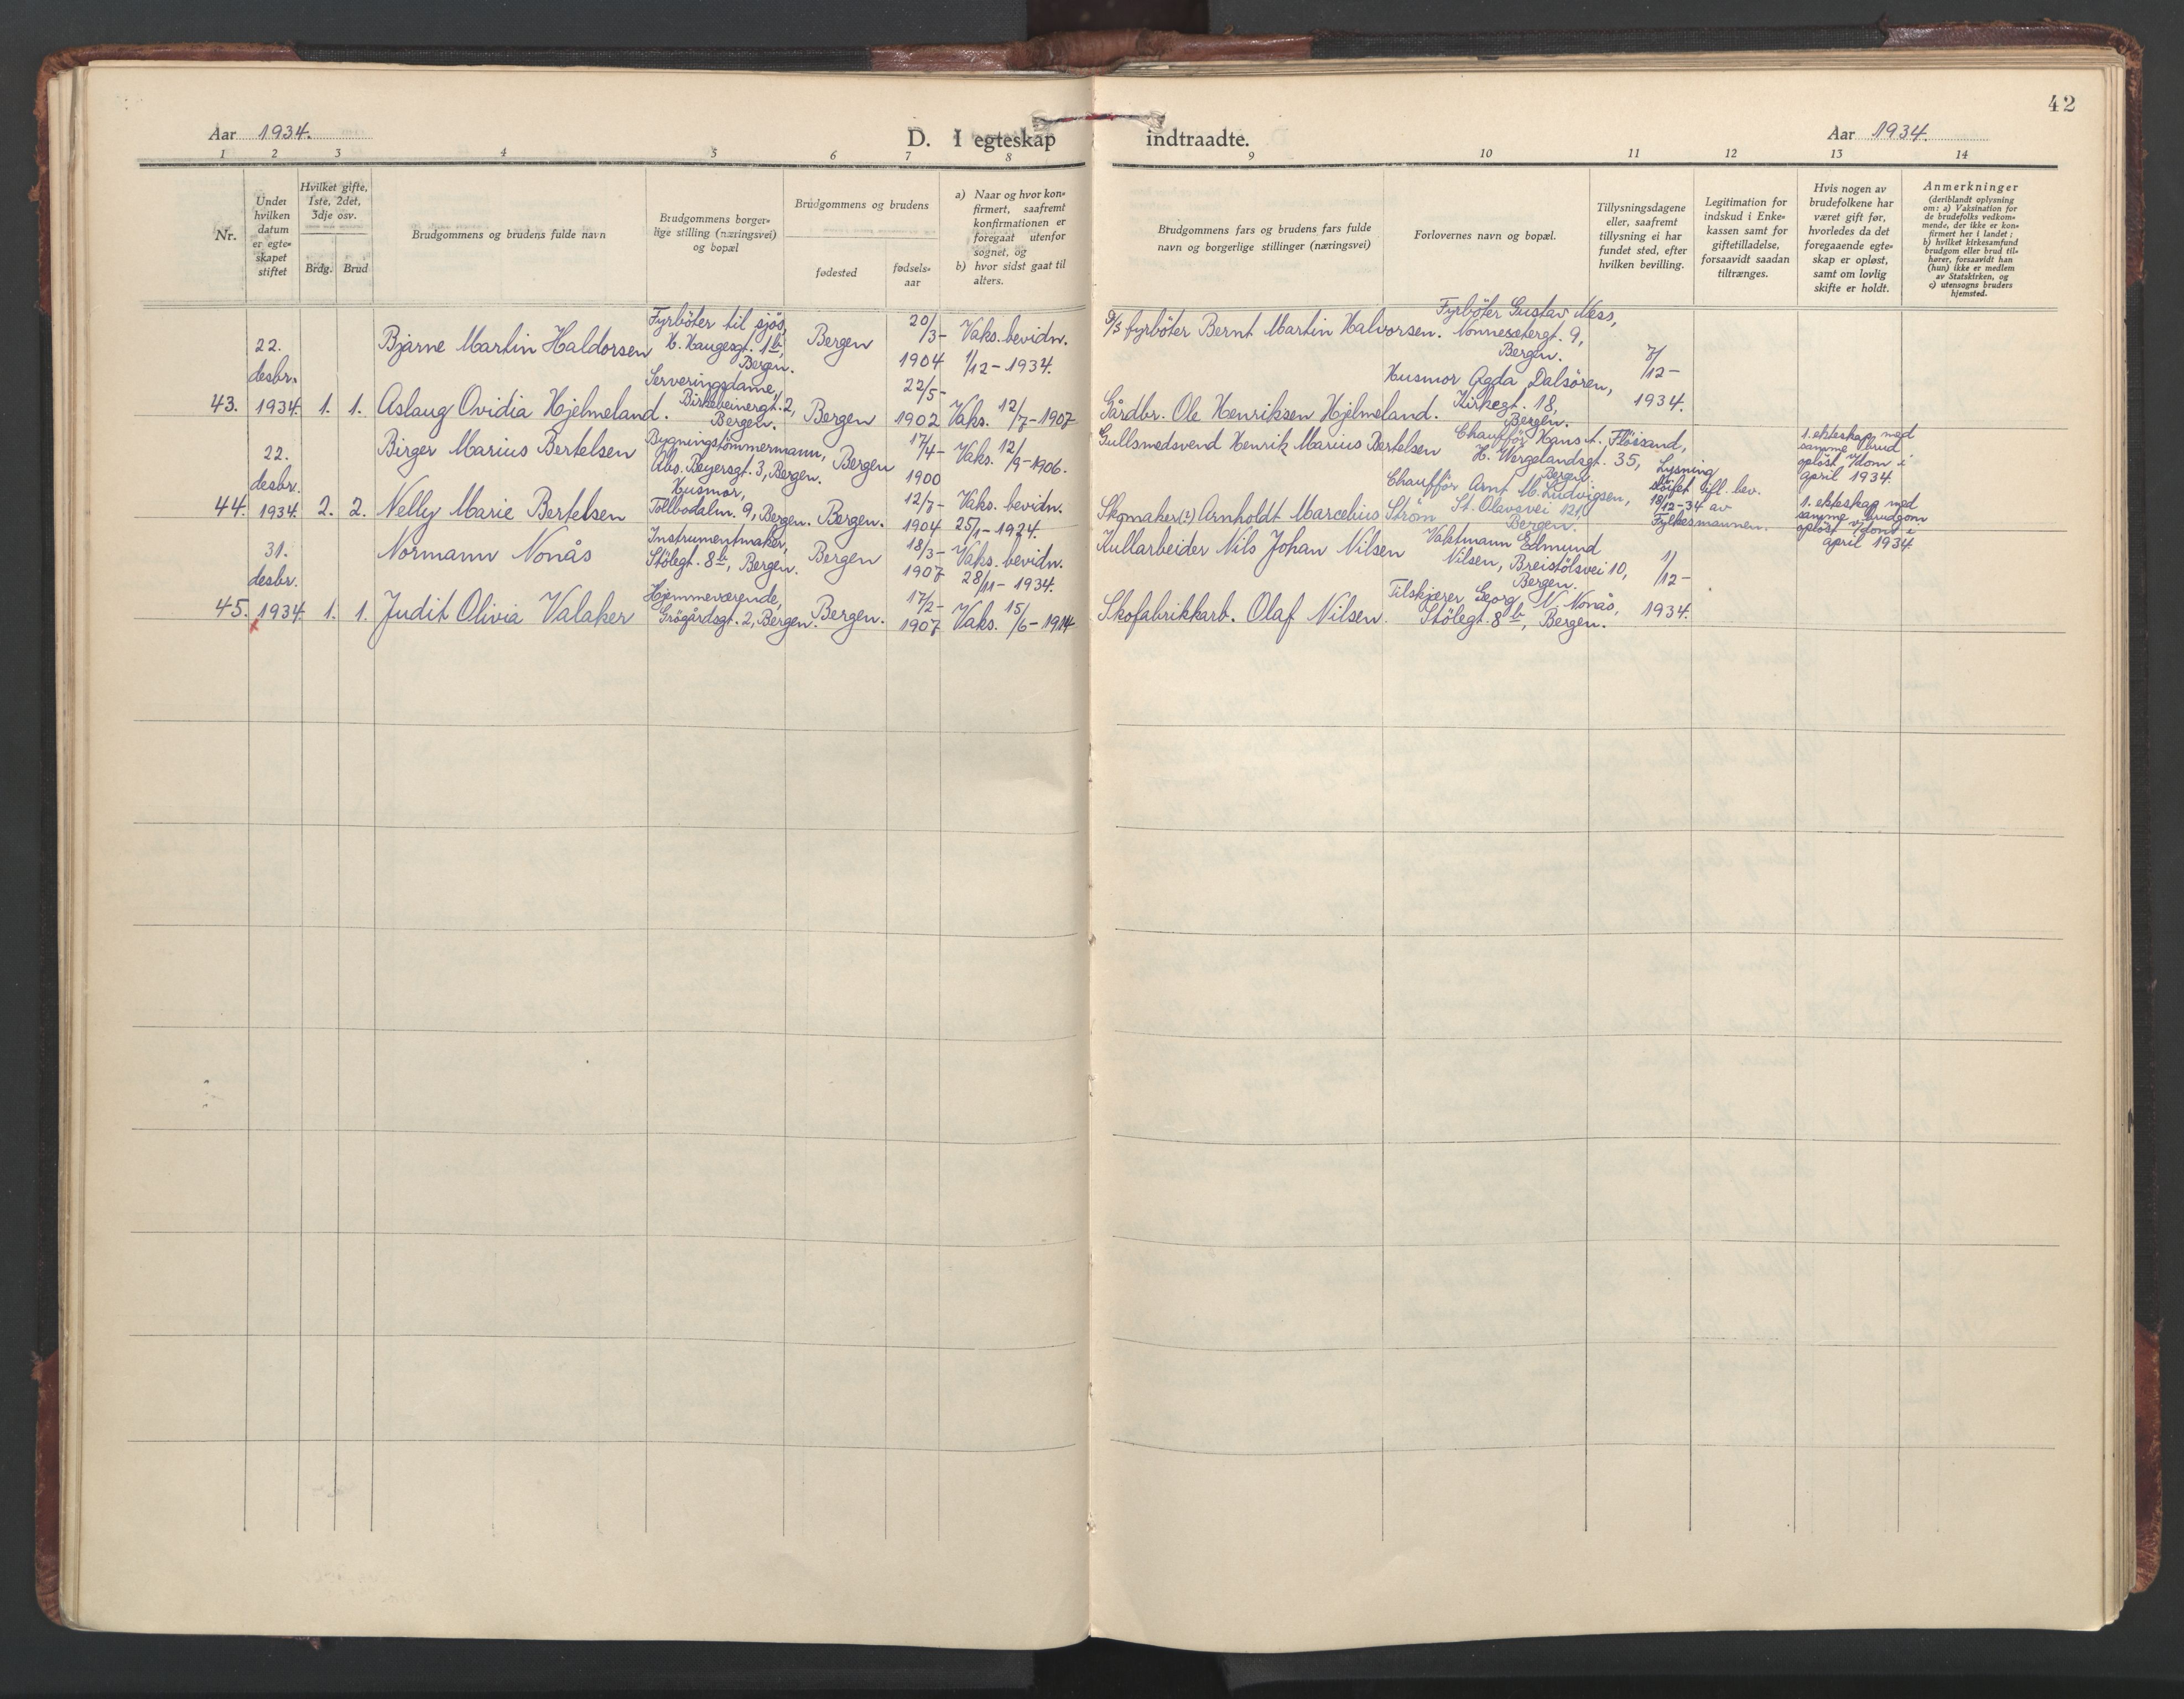 42
Aar 1934.
D. I egteskap indtraadte.
Aar 1934.
1 2 3 4 5 6 7 8 9 10 11 12 13 14
Nr.
Under
hvilken
datum
er egte-
skapet
stiftet
Hvilket gifte,
1ste, 2det,
3dje osv.
Brdg. Brud
Brudgommens og brudens fulde navn
Brudgommens borger-
lige stilling (næringsvei)
og bopæl
Brudgommens og brudens
fødested
fødsels-
aar
a) Naar og hvor kon-
firmert, saafremt
konfirmationen er
foregaat utenfor
sognet, og
b) hvor sidst gaat til
alters.
Brudgommens fars og brudens fars fulde
navn og borgerlige stillinger (næringsvei)
Forlovernes navn og bopæl.
Tillysningsdagene
eller, saafremt
tillysning ei har
fundet sted, efter
hvilken bevilling.
Legitimation for
indskud i Enke-
kassen samt for
giftetilladelse,
forsaavidt saadan
tiltrænges.
Hvis nogen av
brudefolkene har
været gift før,
hvorledes da det
foregaaende egte-
skap er opløst,
samt om lovlig
skifte er holdt.
Anmerkninger
(deriblandt oplysning
om: a) Vaksination for
de brudefolks vedkom-
mende, der ikke er kon-
firmert her i landet;
b) hvilket kirkesamfund
brudgom eller brud til-
hører, forsaavidt han
(hun) ikke er medlem
av Statskirken, og
c) utensogns bruders
hjemsted.
43.
22.
desbr.
1934.
1. 1.
Bjarne Martin Haldorsen
Fyrböter til sjös,
H. Haugesgt. 1b,
Bergen.
Bergen
20/3-
1904
Vaks. bevidn.
1/12-1934.
fyrböter Bernt Martin Halvorsen.
Fyrböter Gustav Ness,
Nonnesetergt. 9,
Bergen.
7/
12-
1934.
Aslaug Ovidia Hjelmeland.
Serveringsdame,
Birkebeinergt. 2,
Bergen.
Bergen
22/5-
1902
Vaks. 12/7-1907
Gårdbr. Ole Henriksen Hjelmeland.
Husmor Agda Dalsören,
Kirkegt. 18,
Bergen.
44.
22.
desbr.
1934.
2. 2.
Birger Marius Bertelsen
Bygningstömmermann,
Abs. Beyersgt. 3, Bergen.
Bergen
17/4-
1900
Vaks. 12/9-1906.
Gullsmedsvend Henrik Marius Bertelsen
Chaufför Hans A. Flösand,
H. Wergelandsgt. 35,
Bergen.
Lysning
slöifet ifl. bev.
18/12-34 av
Fylkesmannen.
1. ekteskap med
samme brud
oplöst v/dom i
april 1934.
Nelly Marie Bertelsen
Husmor,
Tollbodalm. 9, Bergen.
Bergen.
12/7-
1904
Vaks. bevidn.
25/1-1924.
Skomaker(?) Arnholdt Marcelius Ström
Chaufför Arnt M. Ludvigsen,
St. Olavsvei 121,
Bergen.
1. ekteskap med
samme brudgom
oplöst v/dom i
april 1934.
45.
31.
desbr.
1934.
1. 1.
Normann Nonås
Instrumentmaker,
Stölegt. 8b, Bergen.
Bergen
18/3-
1907
Vaks. bevidn.
28/11-1934.
Kullarbeider Nils Johan Nilsen
Vaktmann Edmund
Nilsen, Breistölsvei 10,
Bergen.
1/
12-
1934.
Judit Olivia Valaker
Hjemmeværende,
Grögårdsgt. 2, Bergen.
Bergen.
17/2-
1907
Vaks. 15/6-1914
Skofabrikkarb. Olaf Nilsen.
Tilskjærer Georg N. Nonås,
Stölegt. 8b, Bergen.